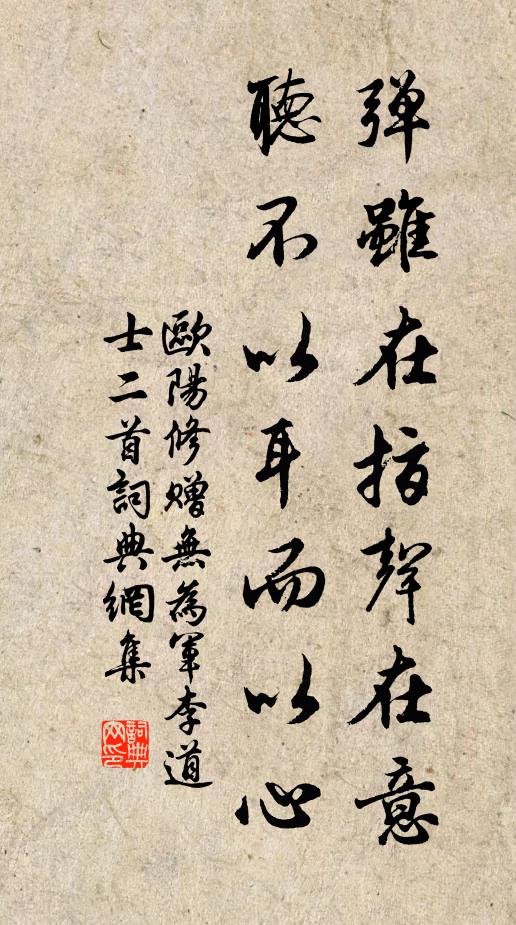 彈雖在指聲在意
聽不以耳而以心
歐陽修贈無為軍李道
士二首詞典網集
詞典
网印